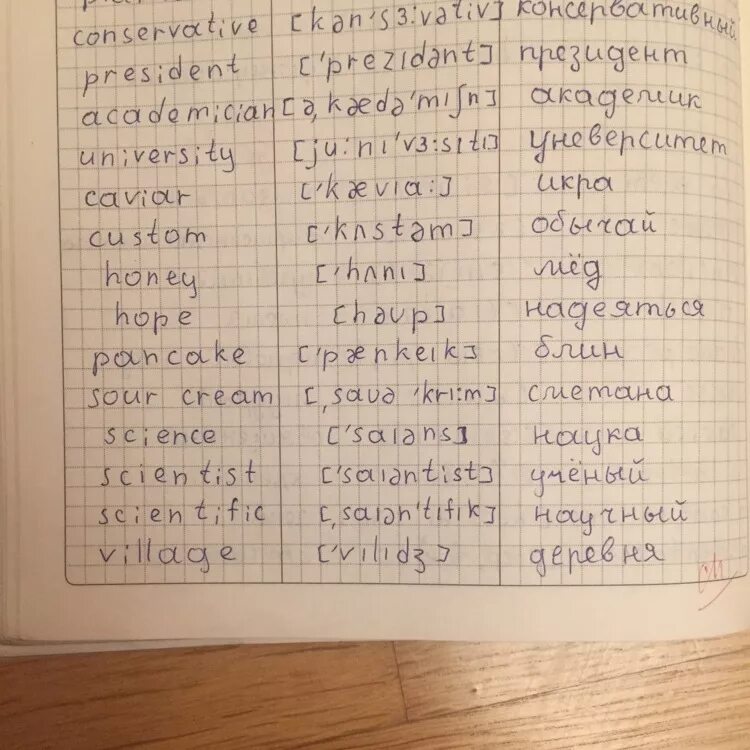 conservative [kən's3:vətiv] консервативный
president ['prezɪdənt] президент
academician [ə,kædə'mɪʃn] академик
university [ju:nɪ'vɜ:sɪtɪ] уневерситет
caviar ['kævɪa:] икра
custom ['kʌstəm] обычай
honey ['hʌnɪ] мёд
hope [həʊp] надеяться
pancake ['pænkeɪk] блин
sour cream [,saʊə 'krɪ:m] сметана
science ['saɪəns] наука
scientist ['saɪəntist] учёный
scientific [,saɪən'tɪfɪk] научный
village ['vɪlɪdʒ] деревня